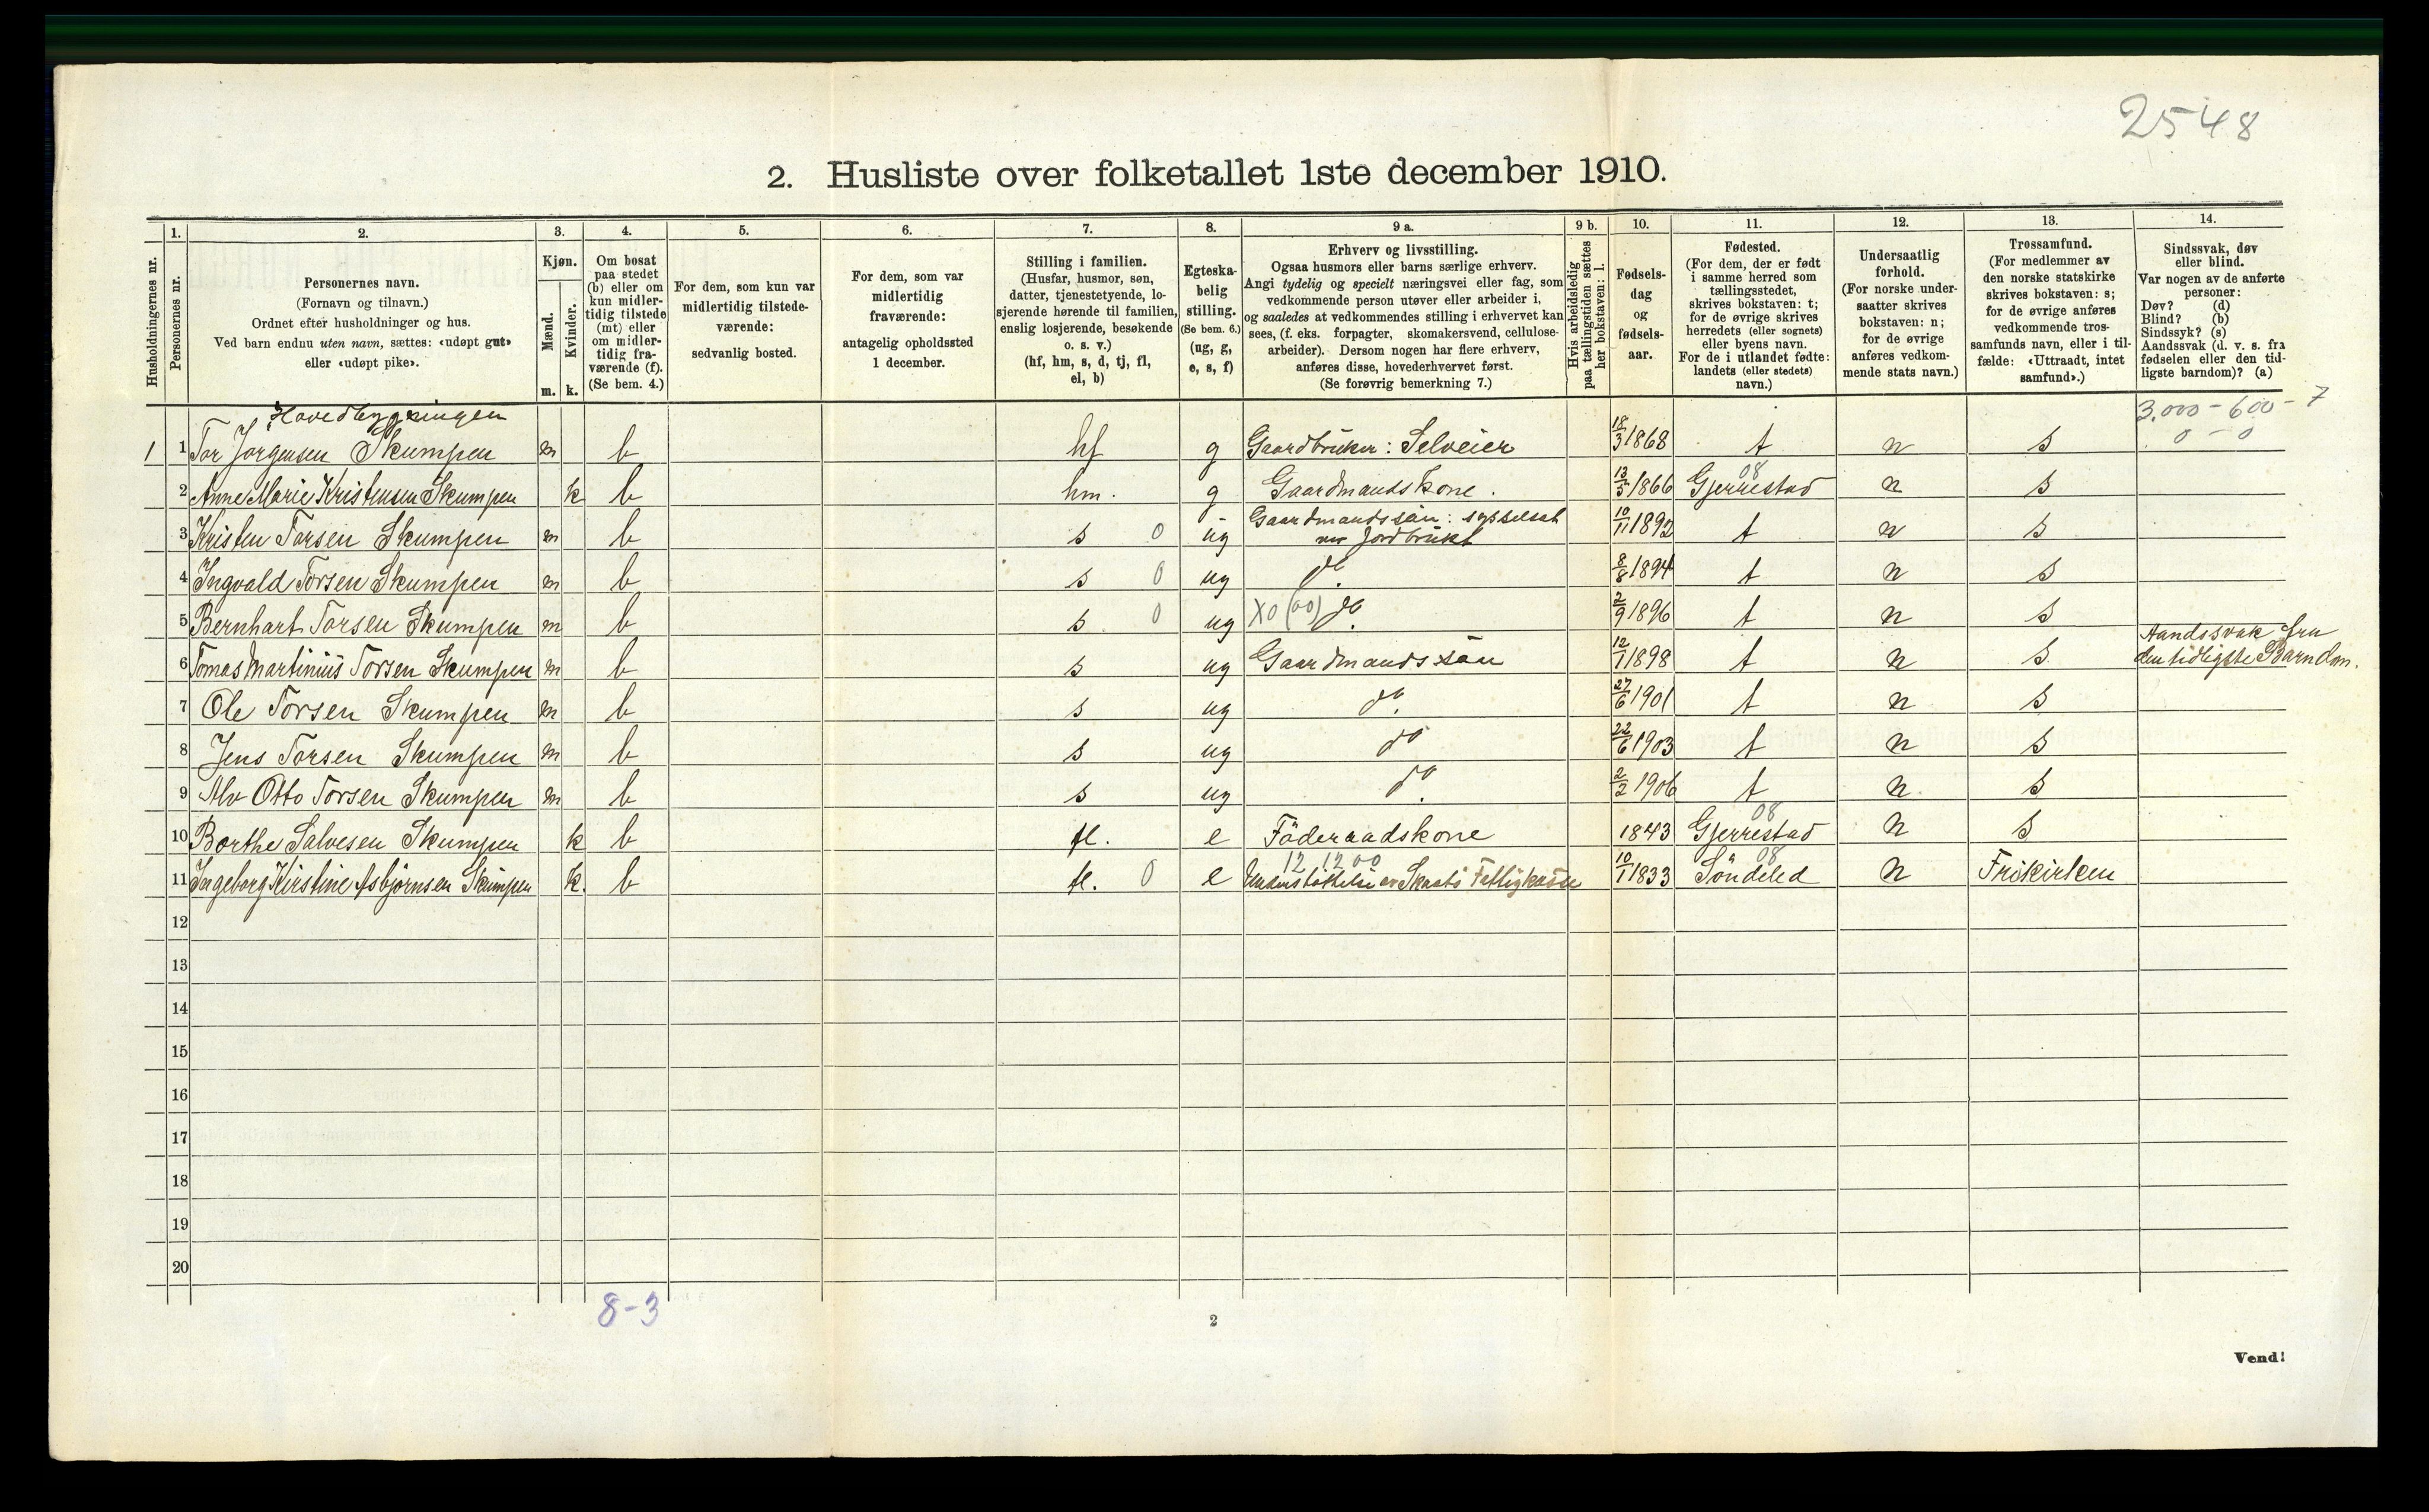 2548
2. Husliste over folketallet 1ste december 1910.
1. 2. 3. 4. 5. 6. 7. 8. 9 a. 9 b. 10. 11. 12. 13. 14.
Husholdningernes nr.
Personernes nr.
Personernes navn.
(Fornavn og tilnavn.)
Ordnet efter husholdninger og hus.
Ved barn endnu uten navn, sættes: «udøpt gut»
eller «udøpt pike».
Kjøn.
Mænd.
Kvinder.
m. k.
Om bosat
paa stedet
(b) eller om
kun midler-
tidig tilstede
(mt) eller
om midler-
tidig fra-
værende (f).
(Se bem. 4.)
For dem, som kun var
midlertidig tilstede-
værende:
sedvanlig bosted.
For dem, som var
midlertidig
fraværende:
antagelig opholdssted
1 december.
Stilling i familien.
(Husfar, husmor, søn,
datter, tjenestetyende, lo-
sjerende hørende til familien,
enslig losjerende, besøkende
o. s. v.)
(hf, hm, s, d, tj, fl,
el, b)
Egteska-
belig
stilling.
(Se bem. 6.)
(ug, g,
e, s, f)
Erhverv og livsstilling.
Ogsaa husmors eller barns særlige erhverv.
Angi tydelig og specielt næringsvei eller fag, som
vedkommende person utøver eller arbeider i,
og saaledes at vedkommendes stilling i erhvervet kan
sees, (f. eks. forpagter, skomakersvend, cellulose-
arbeider). Dersom nogen har flere erhverv,
anføres disse, hovederhvervet først.
(Se forøvrig bemerkning 7.)
Hvis arbeidsledig
paa tællingstiden sættes
her bokstaven: l.
Fødsels-
dag
og
fødsels-
aar.
Fødested.
(For dem, der er født
i samme herred som
tællingsstedet,
skrives bokstaven: t;
for de øvrige skrives
herredets (eller sognets)
eller byens navn.
For de i utlandet fødte:
landets (eller stedets)
navn.)
Undersaatlig
forhold.
(For norske under-
saatter skrives
bokstaven: n;
for de øvrige
anføres vedkom-
mende stats navn.)
Trossamfund.
(For medlemmer av
den norske statskirke
skrives bokstaven: s;
for de øvrige anføres
vedkommende tros-
samfunds navn, eller i til-
fælde: «Uttraadt, intet
samfund».)
Sindssvak, døv
eller blind.
Var nogen av de anførte
personer:
Døv? (d)
Blind? (b)
Sindssyk? (s)
Aandssvak (d. v. s. fra
fødselen eller den tid-
ligste barndom)? (a)
Hovedbygningen
3.000 - 600 - 7
0 - 0
1 1 Tor Jørgensen Skumpen m b hf g Gaardbruker: Selveier 18/3 1868 t n s
2 Anne Marie Kristensen Skumpen k b hm. g Gaardmandskone. 13/5 1866 Gjerrestad 08 n s
3 Kristen Torsen Skumpen m b s 0 ug Gaardmandssøn: sysselsat
ved Jordbruket 10/11 1892 t n s
4 Ingvald Torsen Skumpen m b s 0 ug do. 8/8 1894 t n s
5 Bernhart Torsen Skumpen m b s 0 ug X0 (00) do. 2/9 1896 t n s
6 Tomas Martinius Torsen Skumpen m b s ug Gaardmandssøn 12/1 1898 t n s Aandssvak fra
den tidligste Barndom.
7 Ole Torsen Skumpen m b s ug do. 27/6 1901 t n s
8 Jens Torsen Skumpen m b s ug do 22/6 1903 t n s
9 Alv Otto Torsen Skumpen m b s ug do. 2/2 1906 t n s
10 Borthe Salvesen Skumpen k b fl. e Føderaadskone 1843 Gjerrestad 08 n s
11 Ingeborg Kirstine Asbjørnsen Skumpen k. b fl. 0 e 12 12 00 Understøttelse av Skaatø Fattigkasse 10/1 1833 Søndeled 08 n Frikirken
12
13
14
15
16
17
18
19
20
8-3
2
Vend!